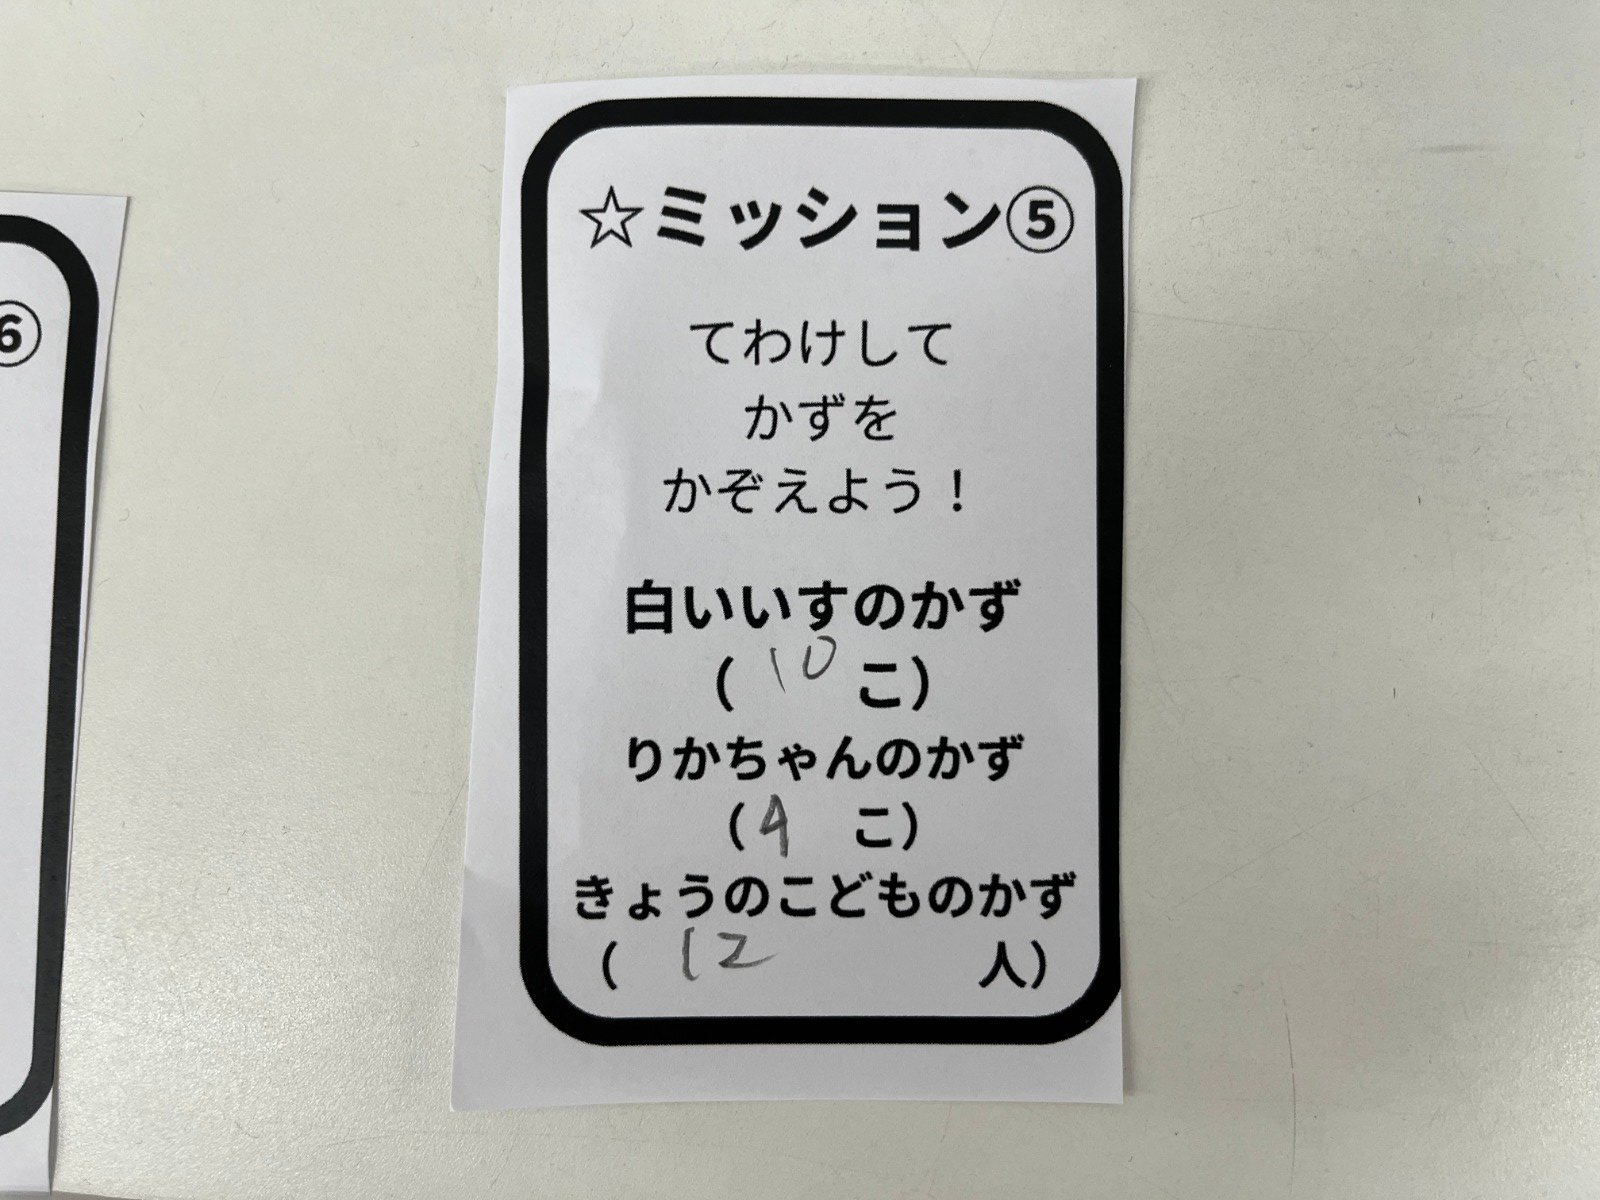 ⑥
☆ミッション⑤
てわけして
かずを
かぞえよう！
白いいすのかず
(10こ)
りかちゃんのかず
(4こ)
きょうのこどものかず
(12人)